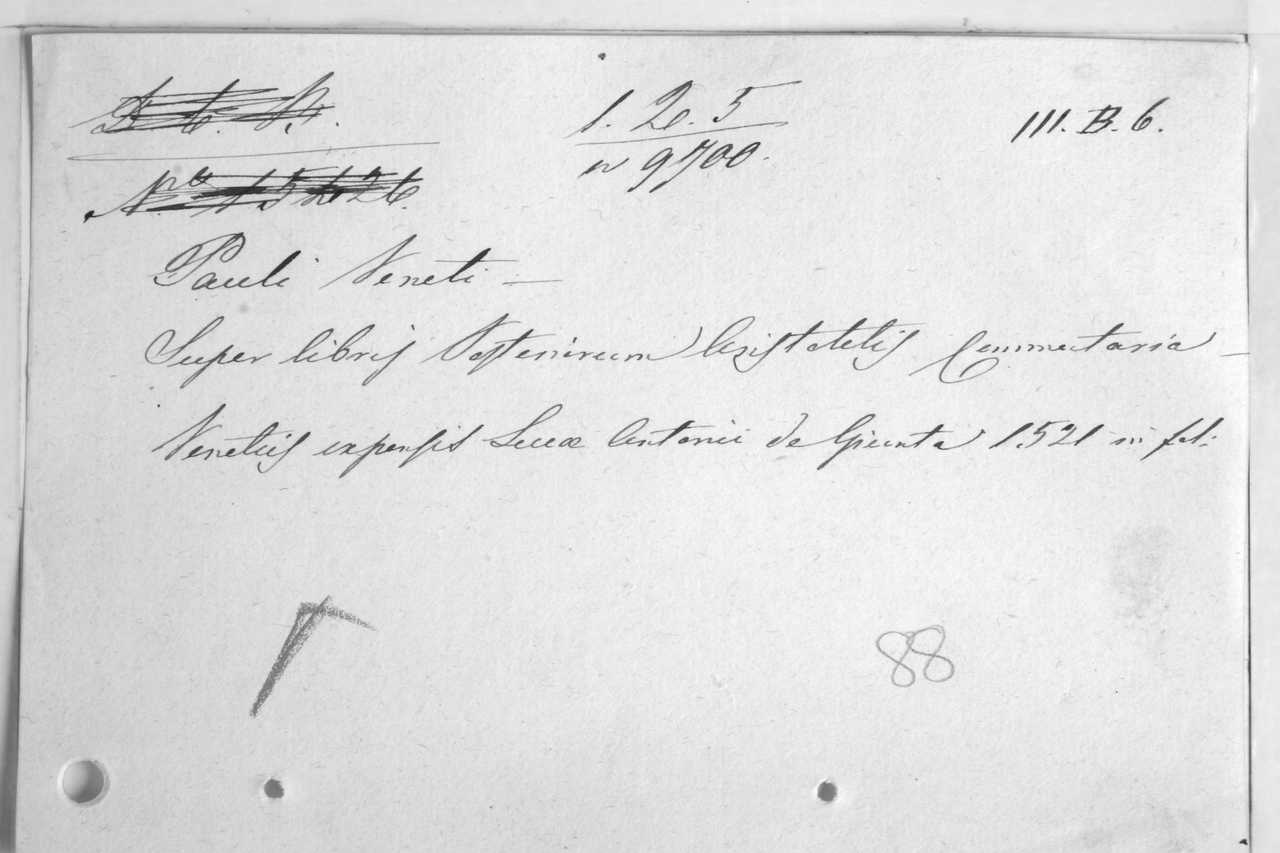 1. 2. 5
n 9700.
III. B. 6.
Pauli Veneti —
Super libris Posteriorum Aristotelis Commentaria —
Venetiis expensis Lucæ Antonii de Giunta 1.521 in fol:
88